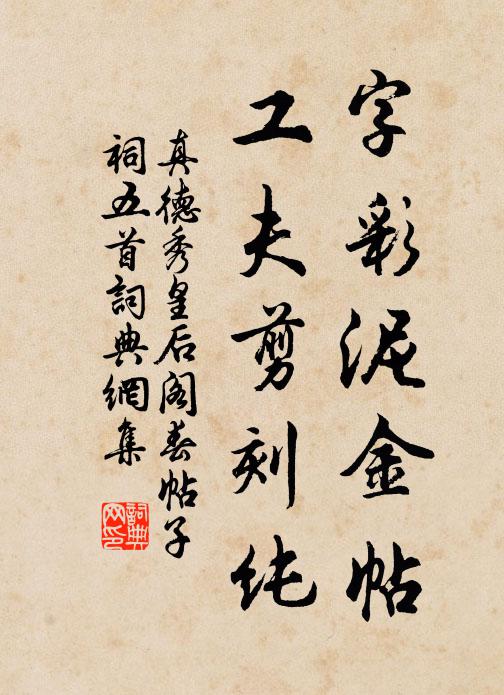 字彩泥金帖
工夫剪刻纯
真德秀皇后阁春帖子
祠五首詞典網集
詞典
网印